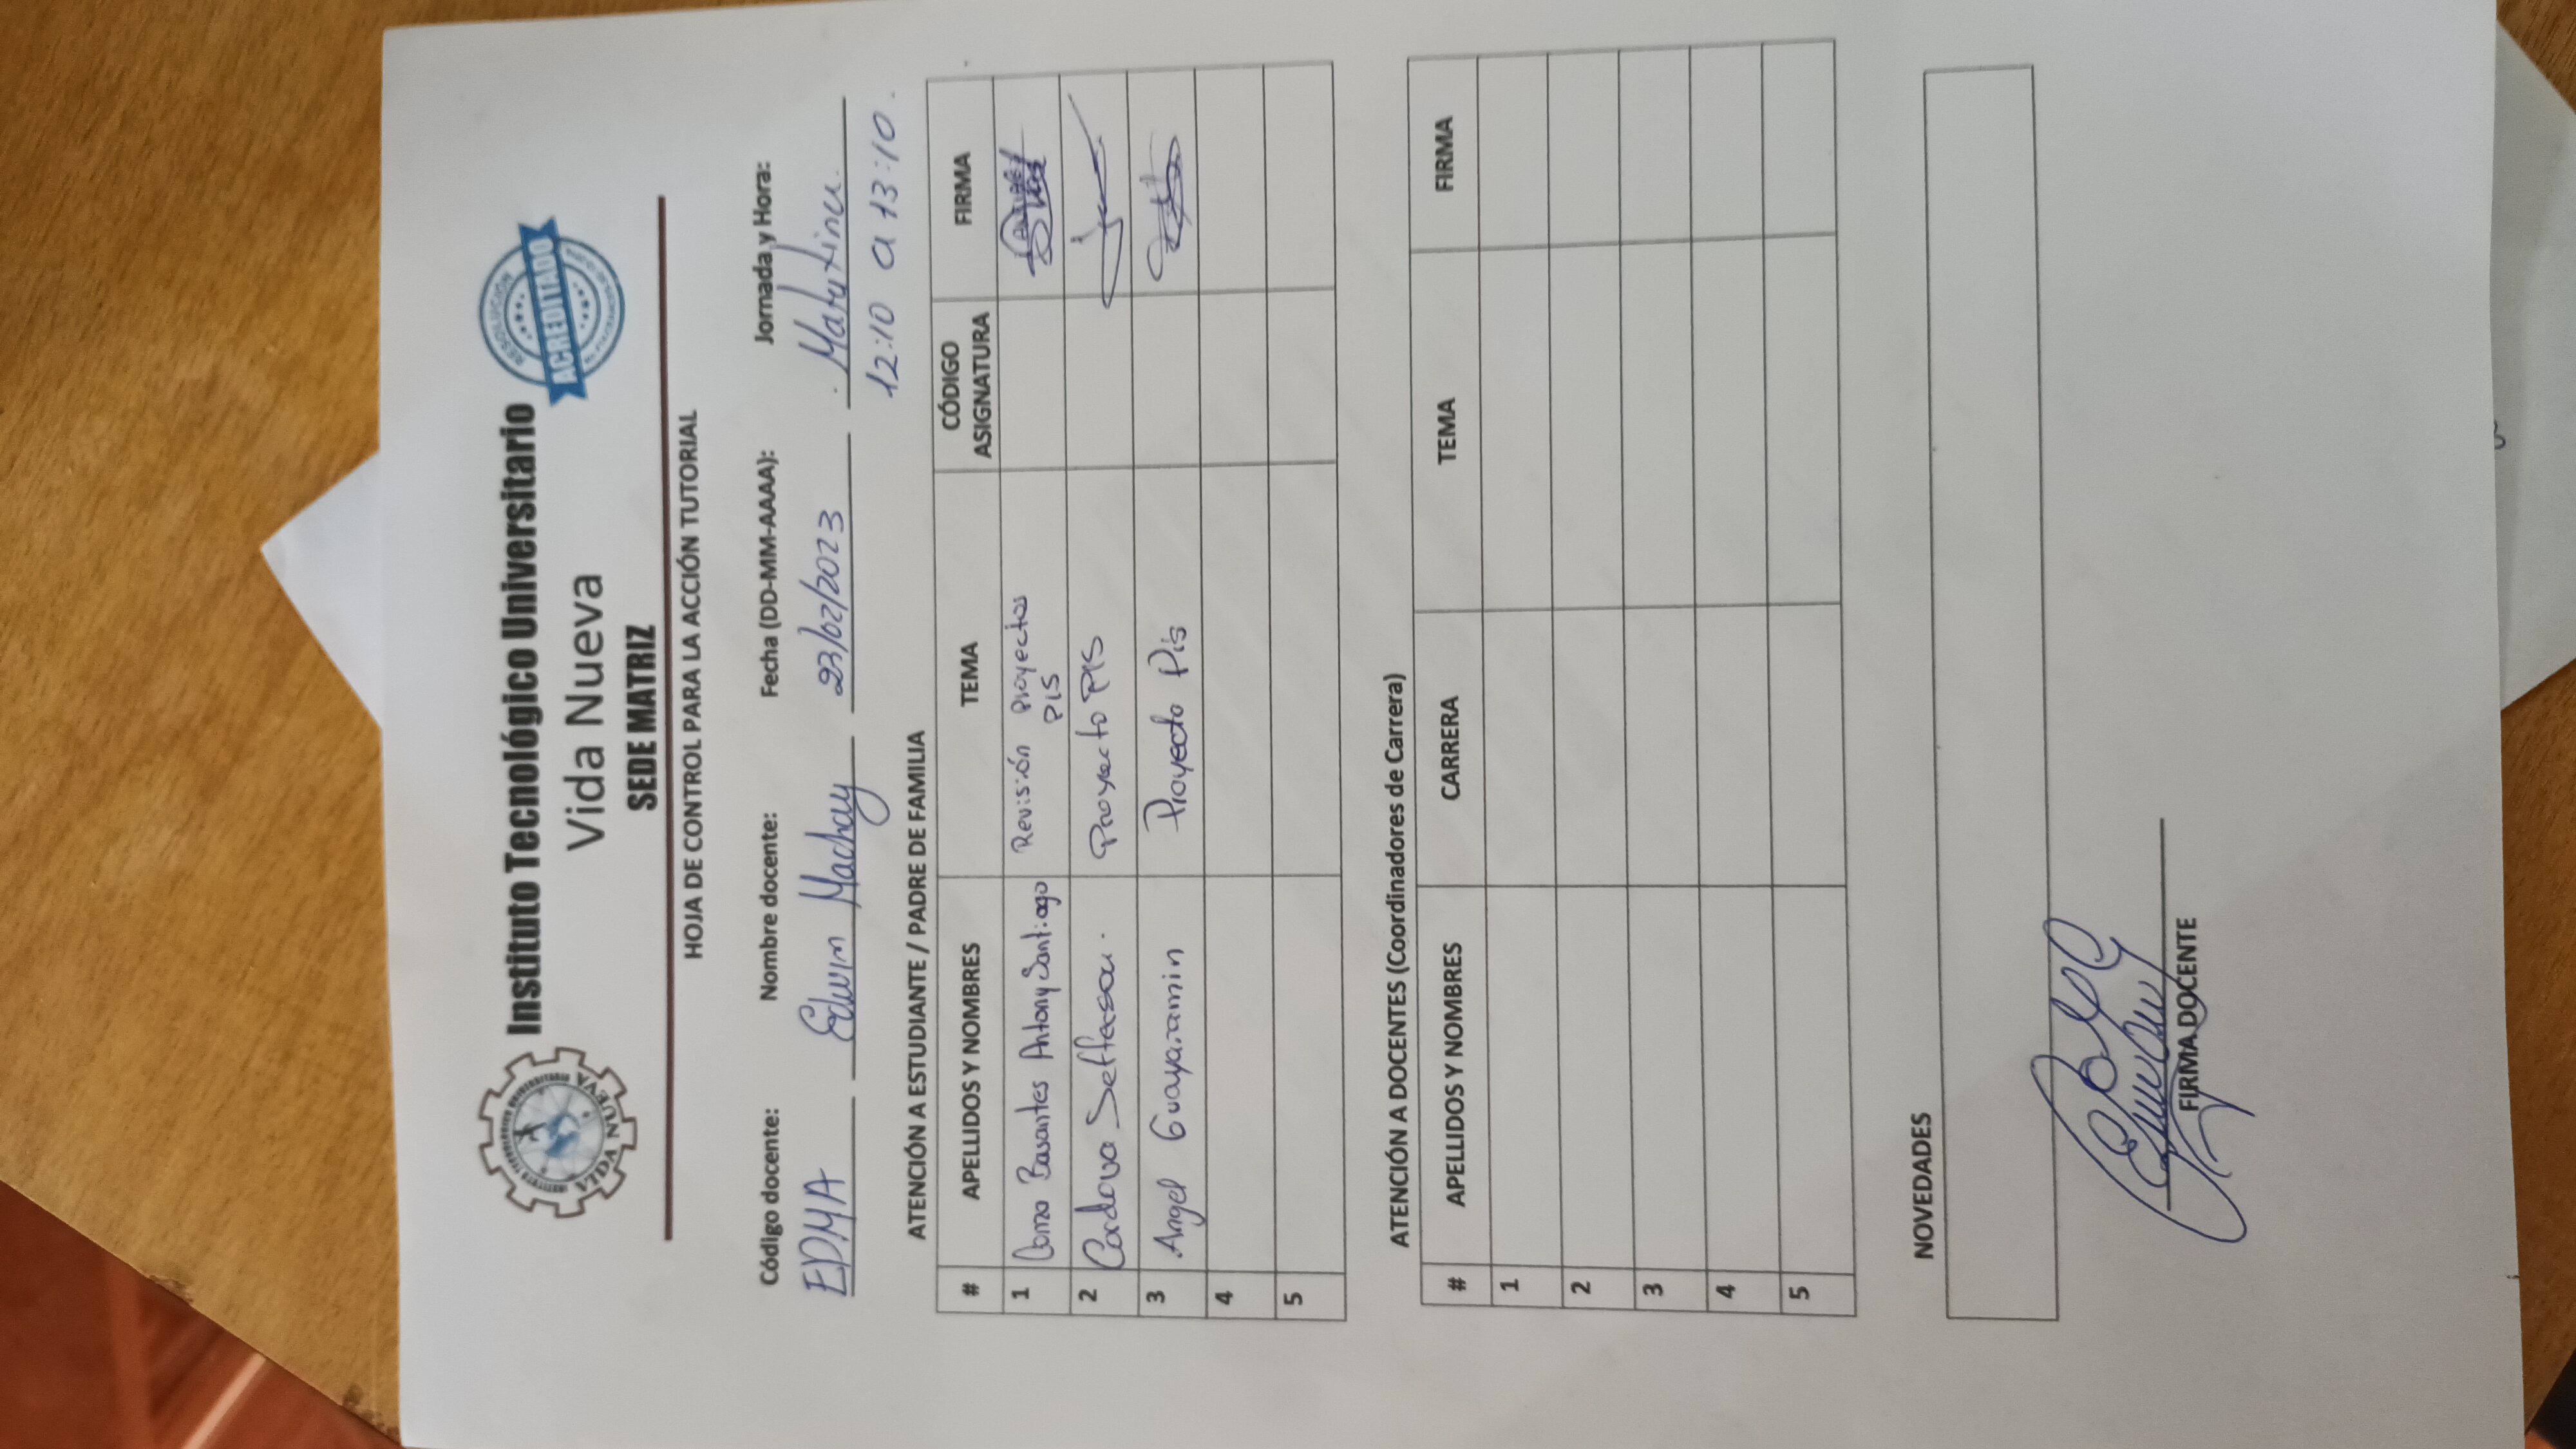 Instituto Tecnológico Universitario
Vida Nueva
SEDE MATRIZ
VIDA NUEVA
RESOLUCIÓN
ACREDITADO
HOJA DE CONTROL PARA LA ACCIÓN TUTORIAL
Código docente: Nombre docente: Fecha (DD-MM-AAAA): Jornada y Hora:
EDMA Edwin Machay 23/02/2023 Matutina.
12:10 a 13:10.
ATENCIÓN A ESTUDIANTE / PADRE DE FAMILIA
# APELLIDOS Y NOMBRES TEMA CÓDIGO ASIGNATURA FIRMA
1 Basantes Antony Santiago Revisión Proyectos
PIS
2 Cordova Jefferson. Proyecto PIS
3 Angel Guayaramin Proyecto Pis
4
5
ATENCIÓN A DOCENTES (Coordinadores de Carrera)
# APELLIDOS Y NOMBRES CARRERA TEMA FIRMA
1
2
3
4
5
NOVEDADES
FIRMA DOCENTE